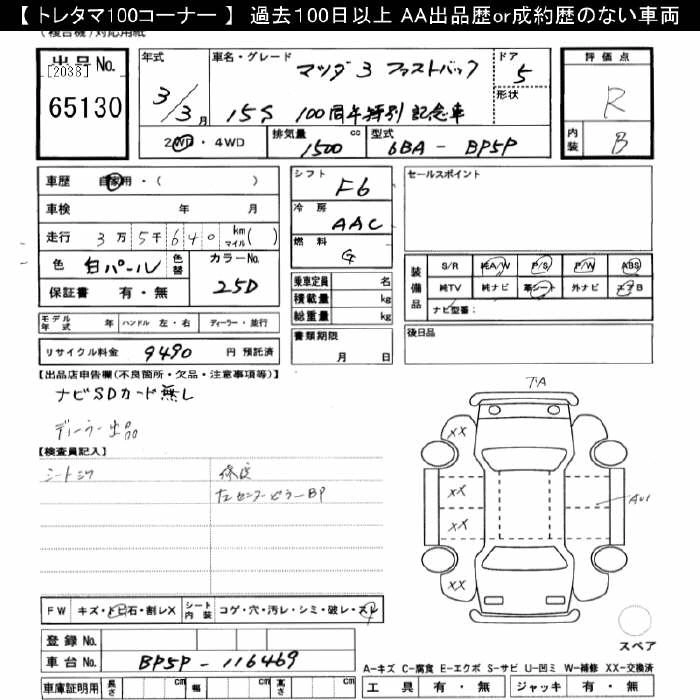 【 トレタマ100コーナー 】 過去100日以上 AA出品歴or成約歴のない車両
(複合機)対応用紙
出品No.
[2038]
65130
年式
3/3月
車名・グレード
マツダ3 ファストバック
15S 100周年特別記念車
ドア
5
形状
2WD・4WD
排気量
1500 cc
型式
6BA - BP5P
評価点
R
内装
B
車歴 自家用・( )
車検 年 月
走行 3万5千640 km マイル( )
色 白パール 色替
カラーNo. 25D
保証書 有・無
モデル年式 年 ハンドル 左・右 ディーラー・並行
リサイクル料金 9490 円 預託済
シフト F6
冷房 AAC
燃料 G
乗車定員 名
積載量 kg
総重量 kg
書類期限
月 日
セールスポイント
装備品
S/R 純A/W P/S P/W ABS
純TV 純ナビ 革シート 外ナビ エアB
ナビ型番:
後日品
【出品店申告欄(不良箇所・欠品・注意事項等)】
ナビSDカード無し
ディーラー出品
【検査員記入】
シートシワ
修復
左センターピラーBP
FW キズ・トビ石・割レX シート内装 コゲ・穴・汚レ・シミ・破レ・スレ
登録No.
車台No. BP5P - 116469
車庫証明用 長さ cm 幅 cm 高さ cm
XX
XX
XX
XX
AU1
スペア
A-キズ C-腐食 E-エクボ S-サビ U-凹ミ W-補修 XX-交換済
工具 有・無 ジャッキ 有・無